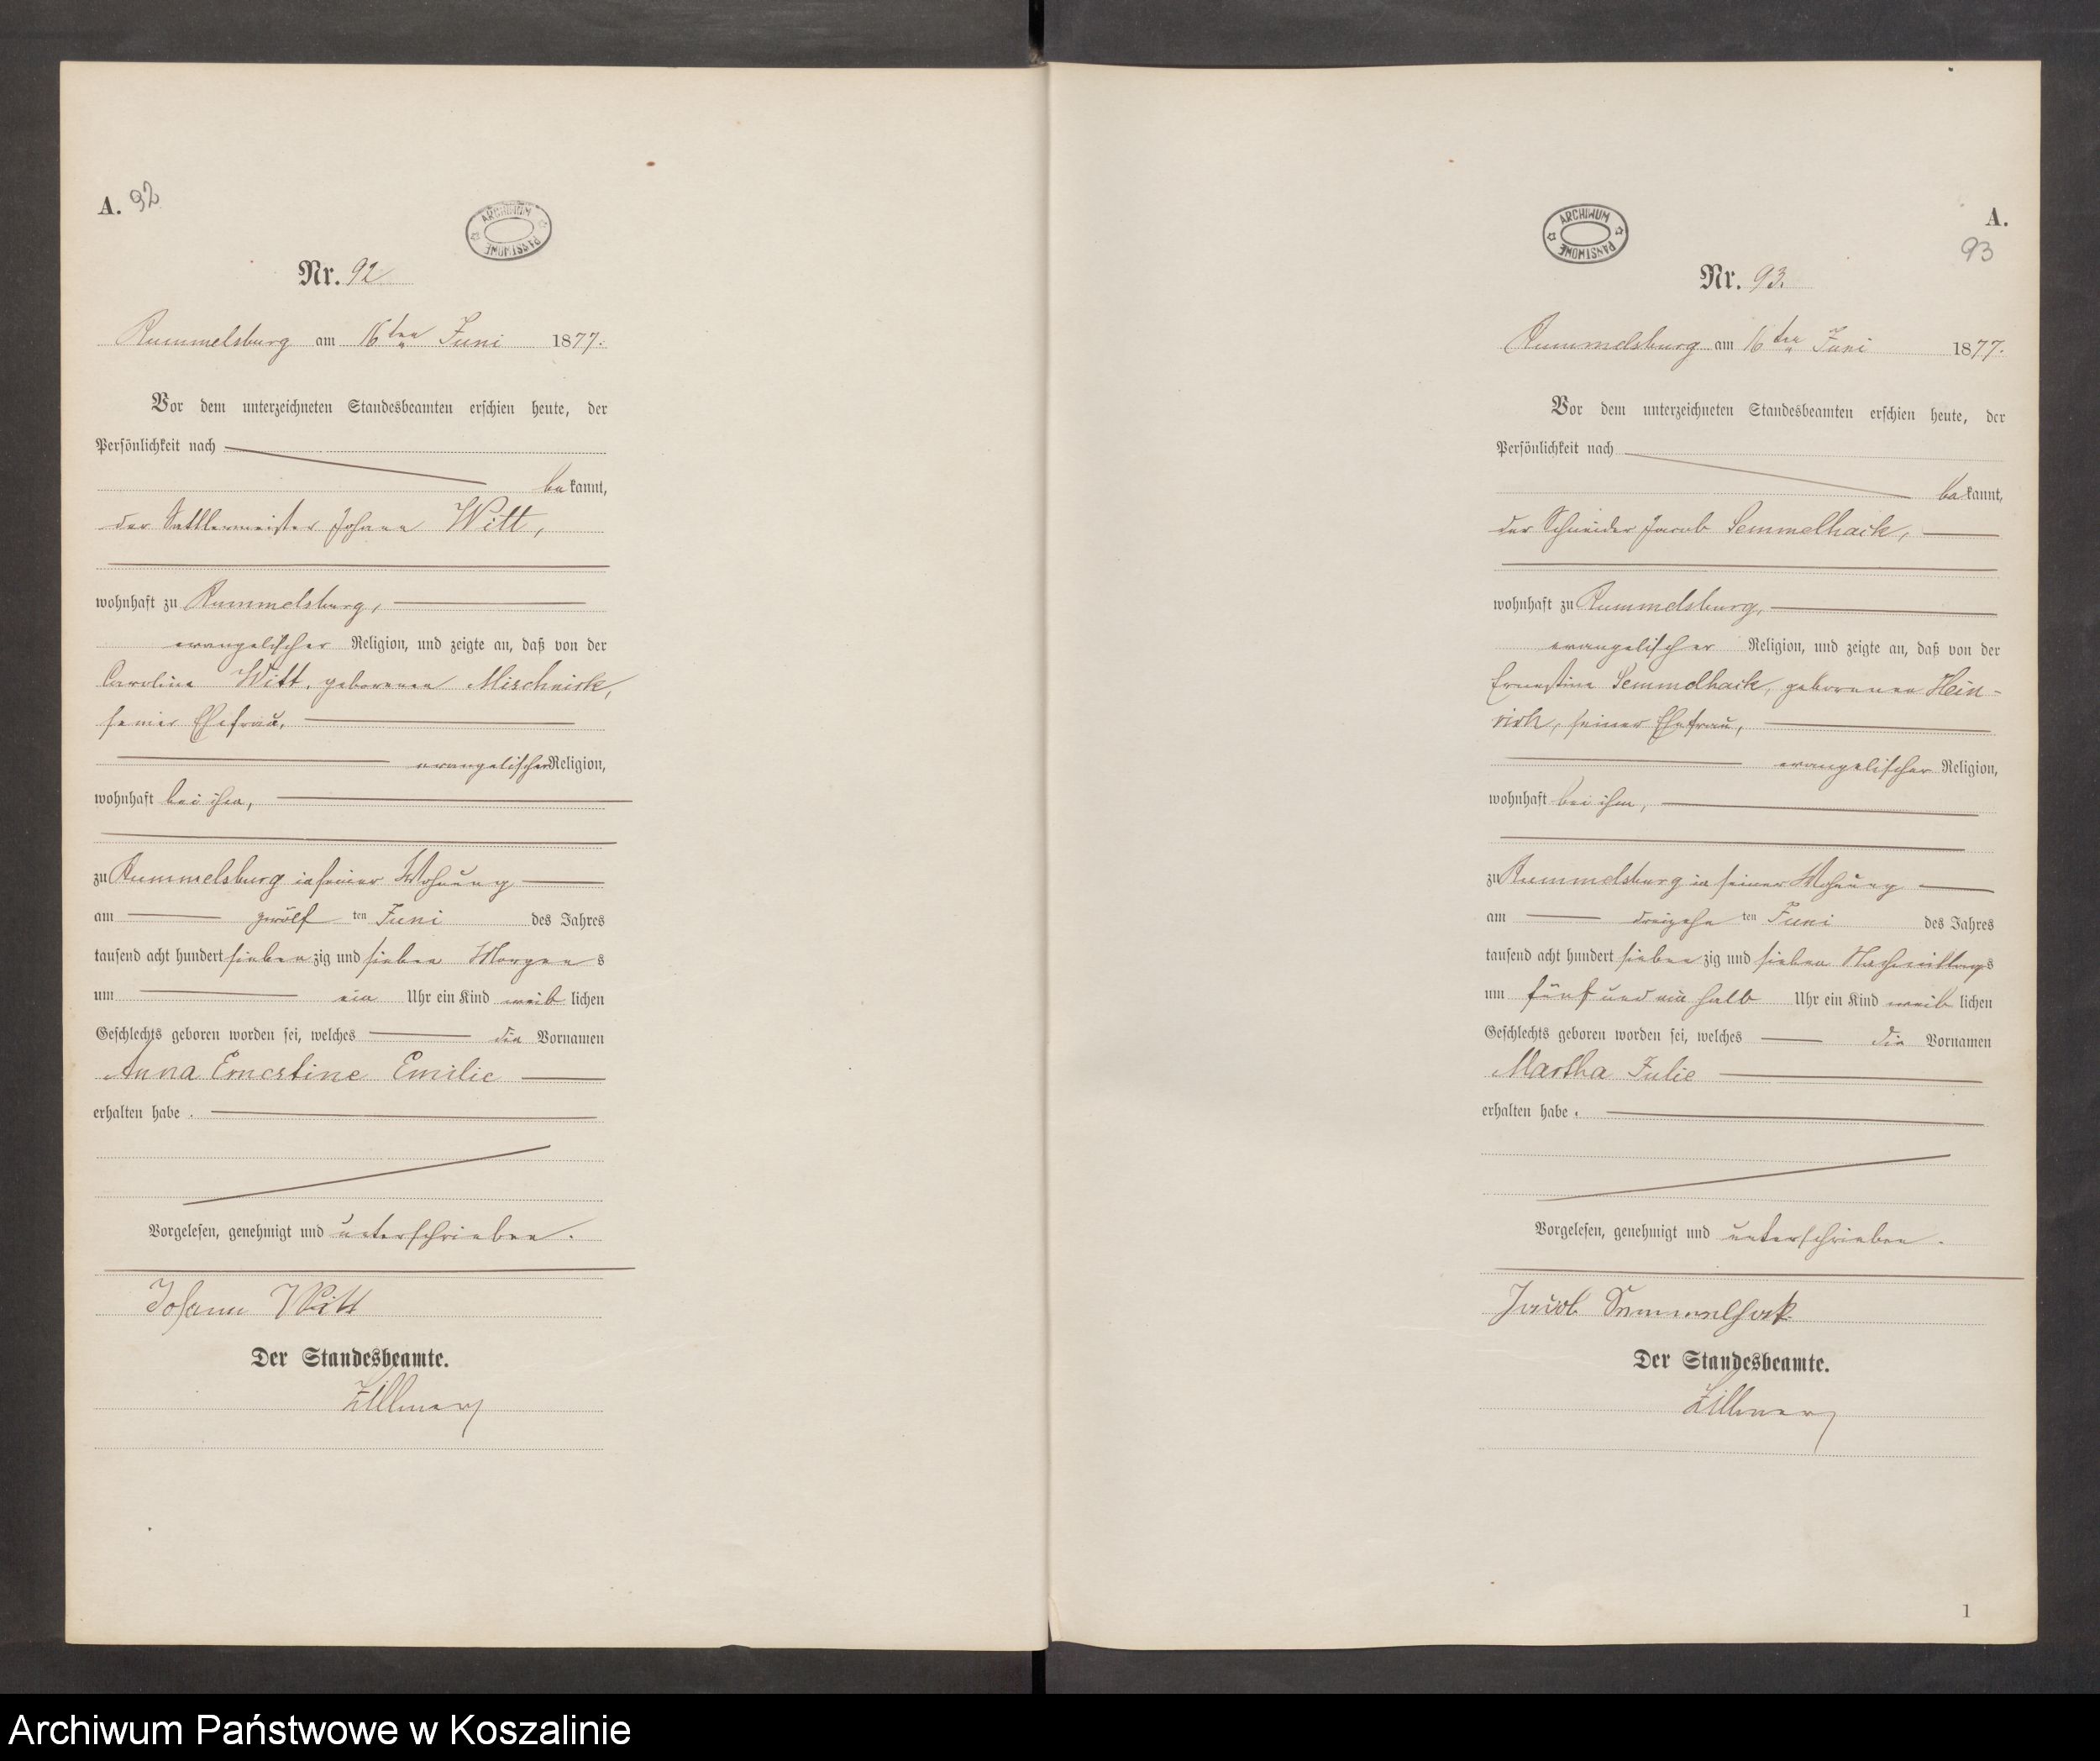 A. 92
ARCHIWUM PAŃSTWOWE
Nr. 92
Rummelsburg am 16ten Juni 1877.
Vor dem unterzeichneten Standesbeamten erschien heute, der
Persönlichkeit nach
bekannt,
der Sattlermeister Johann Witt,
wohnhaft zu Rummelsburg,
evangelischer Religion, und zeigte an, daß von der
Caroline Witt, geborenen Mischnick,
seiner Ehefrau,
evangelischer Religion,
wohnhaft bei ihm,
zu Rummelsburg in seiner Wohnung
am zwölf ten Juni des Jahres
tausend acht hundert siebenzig und sieben Morgens
um ein Uhr ein Kind weiblichen
Geschlechts geboren worden sei, welches die Vornamen
Anna Ernestine Emilie
erhalten habe.
Vorgelesen, genehmigt und unterschrieben.
Johann Witt
Der Standesbeamte.
Zillmer
ARCHIWUM PAŃSTWOWE
A.
93
Nr. 93.
Rummelsburg am 16ten Juni 1877.
Vor dem unterzeichneten Standesbeamten erschien heute, der
Persönlichkeit nach
bekannt,
der Schneider Jacob Semmelhack,
wohnhaft zu Rummelsburg,
evangelischer Religion, und zeigte an, daß von der
Ernestine Semmelhack, geborenen Hein-
rich, seiner Ehefrau,
evangelischer Religion,
wohnhaft bei ihm,
zu Rummelsburg in seiner Wohnung
am dreizehn ten Juni des Jahres
tausend acht hundert siebenzig und sieben Nachmittags
um fünf und ein halb Uhr ein Kind weiblichen
Geschlechts geboren worden sei, welches die Vornamen
Martha Julie
erhalten habe.
Vorgelesen, genehmigt und unterschrieben.
Jacob Semmelhack
Der Standesbeamte.
Zillmer
1
Archiwum Państwowe w Koszalinie